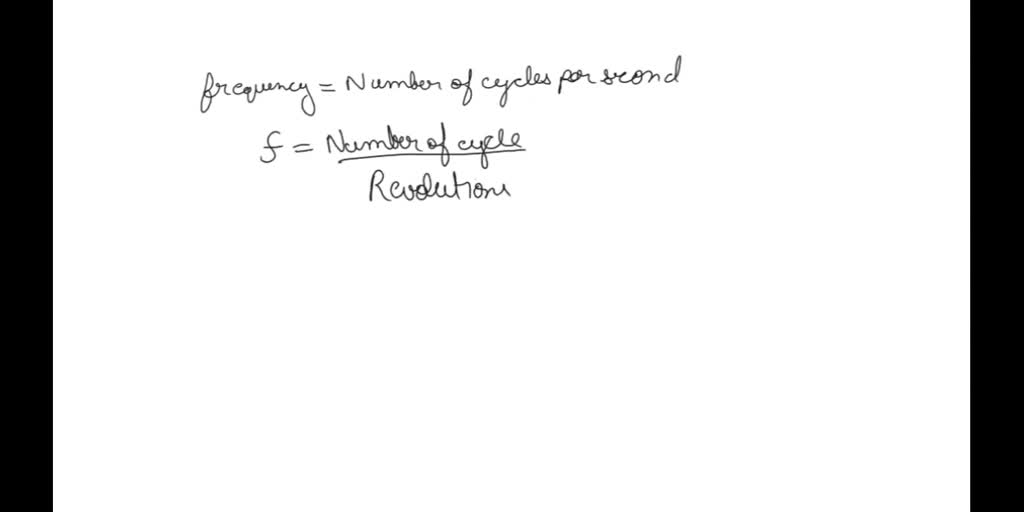 frequency = Number of cycles per second
f = Number of cycle
Revolutions